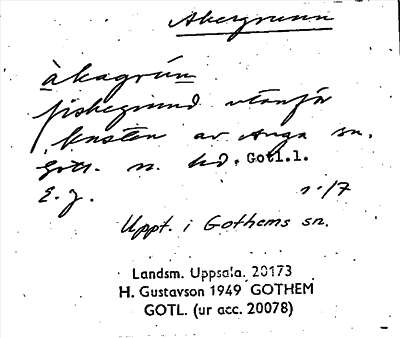 Åkergrunn
àkagrún
fiskegrund utanför
kusten av Anga sn.
Gotl. n. hd. Gotl.l.
E. J.
Uppt. i Gothems sn.
Landsm. Uppsala. 20173
H. Gustavson 1949 GOTHEM
GOTL. (ur acc. 20078)